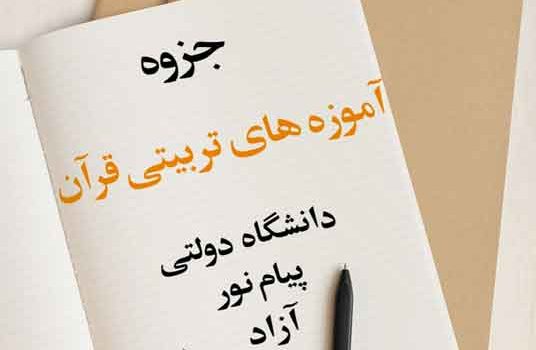 جزوه
آموزه های تربیتی قرآن
دانشگاه دولتی
پیام نور
آزاد